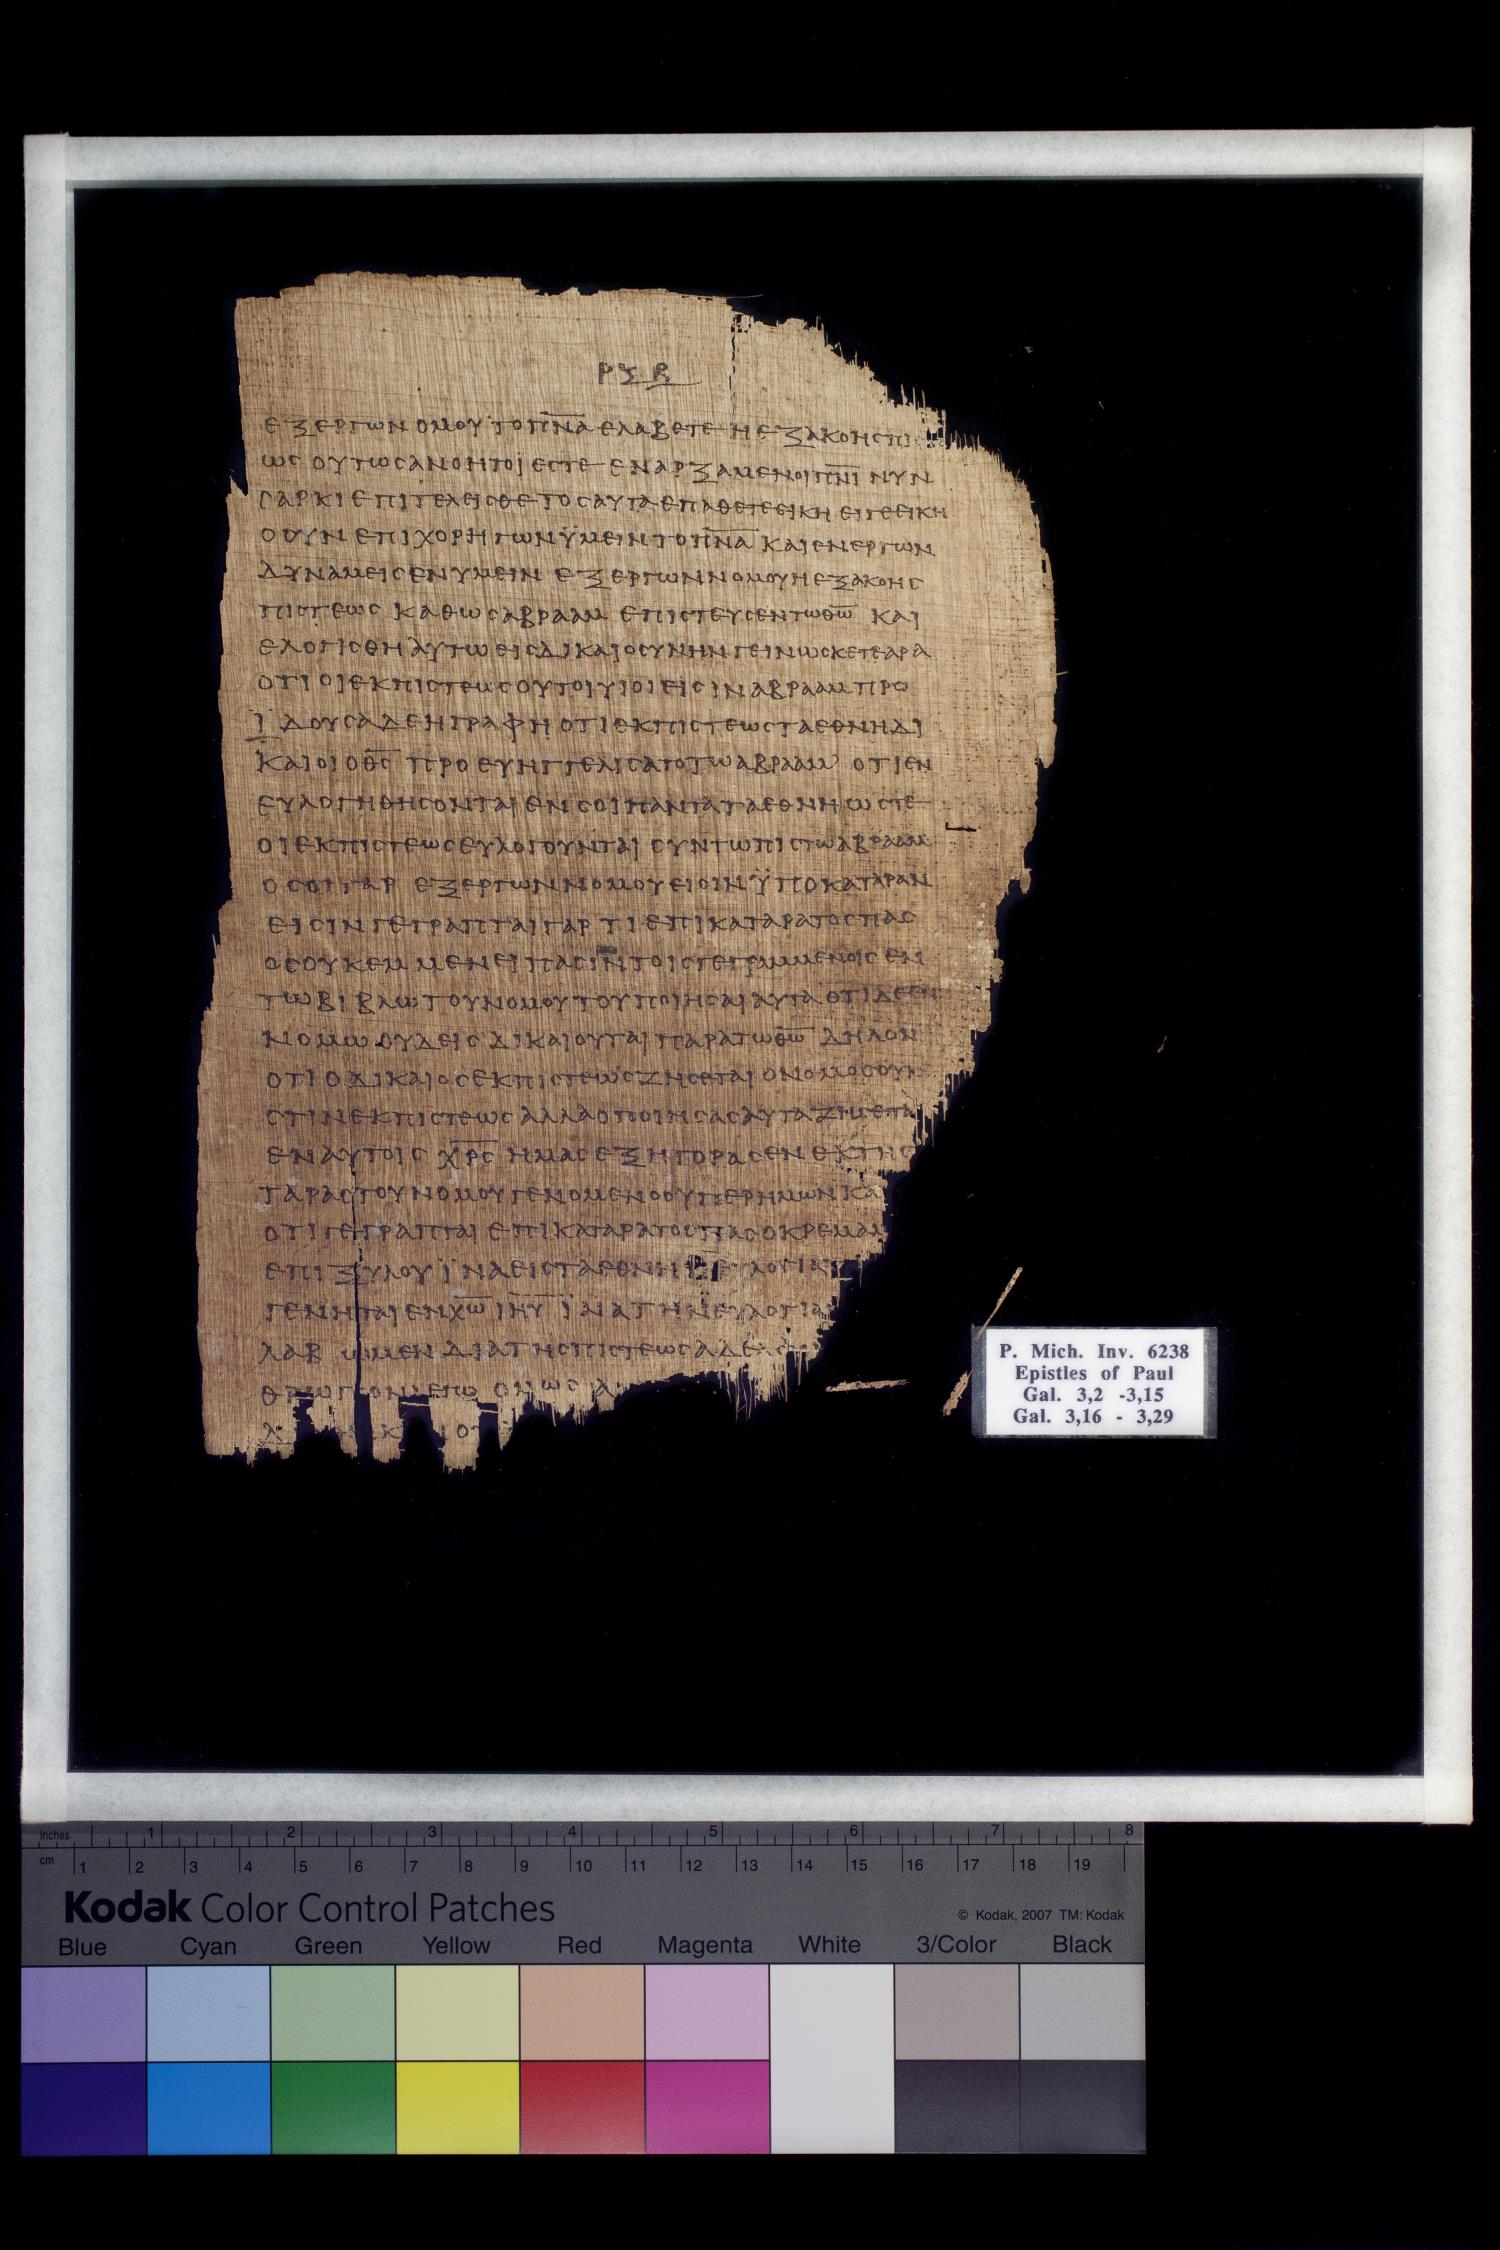 ΡΞΒ
ΕΞΕΡΓΩΝ ΟΜΟΥ ΤΟΠΝΑ ΕΛΑΒΕΤΕ Η ΕΞΑΚΟΗСΠΙ
ΩС ΟΥΤΩСΑΝΟΗΤΟΙ ΕСΤΕ ΕΝΑΡΞΑΜΕΝΟΙ ΠΝΙ ΝΥΝ
СΑΡΚΙ ΕΠΙΤΕΛΕΙСΘΕ ΤΟСΑΥΤΑ ΕΠΑΘΕΤΕ ΕΙΚΗ ΕΙΓΕ ΕΙΚΗ
ΟΟΥΝ ΕΠΙΧΟΡΗΓΩΝ ΫΜΕΙΝ ΤΟ ΠΝΑ ΚΑΙ ΕΝΕΡΓΩΝ
ΔΥΝΑΜΕΙС ΕΝ ΥΜΕΙΝ ΕΞ ΕΡΓΩΝ ΝΟΜΟΥ Η ΕΞ ΑΚΟΗС
ΠΙСΤΕΩС ΚΑΘΩС ΑΒΡΑΑΜ ΕΠΙСΤΕΥСΕΝ ΤΩ ΘΩ ΚΑΙ
ΕΛΟΓΙСΘΗ ΑΥΤΩ ΕΙС ΔΙΚΑΙΟСΥΝΗΝ ΓΕΙΝΩСΚΕΤΕ ΑΡΑ
ΟΤΙ ΟΙ ΕΚ ΠΙСΤΕΩС ΟΥΤΟΙ ΥΙΟΙ ΕΙСΙΝ ΑΒΡΑΑΜ ΠΡΟ
ΪΔΟΥСΑ ΔΕ Η ΓΡΑΦΗ ΟΤΙ ΕΚ ΠΙСΤΕΩС ΤΑ ΕΘΝΗ ΔΙ
ΚΑΙΟΙ Ο ΘС ΠΡΟΕΥΗΓΓΕΛΙСΑΤΟ ΤΩ ΑΒΡΑΑΜ ΟΤΙ ΕΝ
ΕΥΛΟΓΗΘΗСΟΝΤΑΙ ΕΝ СΟΙ ΠΑΝΤΑ ΤΑ ΕΘΝΗ ΩСΤΕ
ΟΙ ΕΚ ΠΙСΤΕΩС ΕΥΛΟΓΟΥΝΤΑΙ СΥΝ ΤΩ ΠΙСΤΩ ΑΒΡΑΑΜ
ΟСΟΙ ΓΑΡ ΕΞ ΕΡΓΩΝ ΝΟΜΟΥ ΕΙСΙΝ ΫΠΟ ΚΑΤΑΡΑΝ
ΕΙСΙΝ ΓΕΓΡΑΠΤΑΙ ΓΑΡ ΤΙ ΕΠΙΚΑΤΑΡΑΤΟС ΠΑС
ΟС ΟΥΚ ΕΜΜΕΝΕΙ ΠΑСΙΝ ΤΟΙС ΓΕΓΡΑΜΜΕΝΟΙС ΕΝ
ΤΩ ΒΙΒΛΩ ΤΟΥ ΝΟΜΟΥ ΤΟΥ ΠΟΙΗСΑΙ ΑΥΤΑ ΟΤΙ ΔΕ ΕΝ
ΝΟΜΩ ΟΥΔΕΙС ΔΙΚΑΙΟΥΤΑΙ ΠΑΡΑ ΤΩ ΘΩ ΔΗΛΟΝ
ΟΤΙ Ο ΔΙΚΑΙΟС ΕΚ ΠΙСΤΕΩС ΖΗСΕΤΑΙ Ο ΝΟΜΟС ΟΥΚ
СΤΙΝ ΕΚ ΠΙСΤΕΩС ΑΛΛΑ Ο ΠΟΙΗСΑС ΑΥΤΑ ΖΗСΕΤΑΙ
ΕΝ ΑΥΤΟΙС ΧΡС ΗΜΑС ΕΞΗΓΟΡΑСΕΝ ΕΚ ΤΗС
ΤΑΡΑС ΤΟΥ ΝΟΜΟΥ ΓΕΝΟΜΕΝΟС ΥΠΕΡ ΗΜΩΝ ΚΑ
ΟΤΙ ΓΕΓΡΑΠΤΑΙ ΕΠΙΚΑΤΑΡΑΤΟС ΠΑС Ο ΚΡΕΜΑΜ
ΕΠΙ ΞΥΛΟΥ ΪΝΑ ΕΙС ΤΑ ΕΘΝΗ Η ΕΥΛΟΓΙΑ
ΓΕΝΗΤΑΙ ΕΝ ΧΩ ΙΗΥ ΪΝΑ ΤΗΝ ΕΥΛΟΓΙΑ
ΛΑΒΩΜΕΝ ΔΙΑ ΤΗС ΠΙСΤΕΩС ΑΔΕΛ
ΘΡΩΠΟΝ ΛΕΓΩ ΟΜΩС Α
P. Mich. Inv. 6238
Epistles of Paul
Gal. 3,2 -3,15
Gal. 3,16 - 3,29
inches 1 2 3 4 5 6 7 8
cm 1 2 3 4 5 6 7 8 9 10 11 12 13 14 15 16 17 18 19
Kodak Color Control Patches
© Kodak, 2007 TM: Kodak
Blue Cyan Green Yellow Red Magenta White 3/Color Black